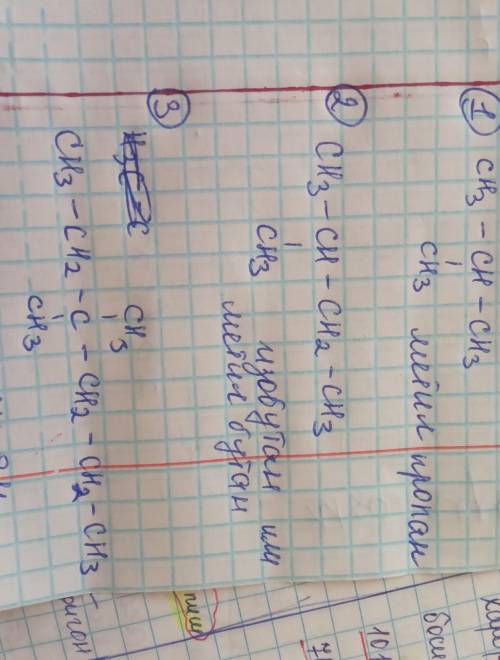 1 CH3 - CH - CH3
CH3 метил пропан
2 CH3 - CH - CH2 - CH3
CH3 изобутан или
метил бутан
3
CH3
CH3 - CH2 - C - CH2 - CH2 - CH3 -
CH3